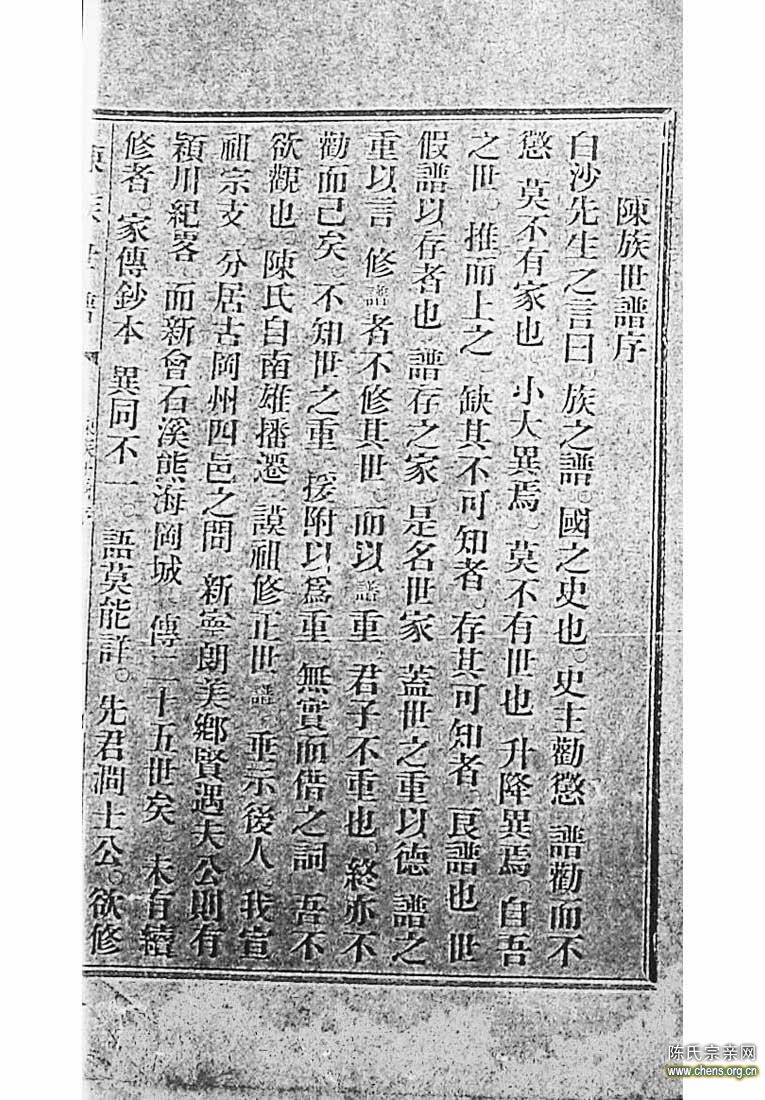 陳族世譜序
白沙先生之言曰。族之譜。國之史也。史主勸懲。譜勸而不
懲。莫不有家也。小大異焉。莫不有世也。升降異焉。自吾
之世。推而上之。缺其不可知者。存其可知者。良譜也。世
假譜以存者也。譜存之家。是名世家。蓋世之重以德。譜之
重以言。修譜者不修其世。而以譜重。君子不重也。終亦不
勸而已矣。不知世之重。援附以爲重。無實而借之詞。吾不
欲觀也。陳氏自南雄播遷。謨祖修正世譜。垂示後人。我宣
祖宗支。分居古岡州四邑之間。新寧朗美鄉賢遇夫公則有
潁川紀畧。而新會石溪熊海岡城。傳二十五世矣。未有續
修者。家傳鈔本。異同不一。語莫能詳。先君澗士公。欲修
陳氏宗亲网
www.chens.org.cn